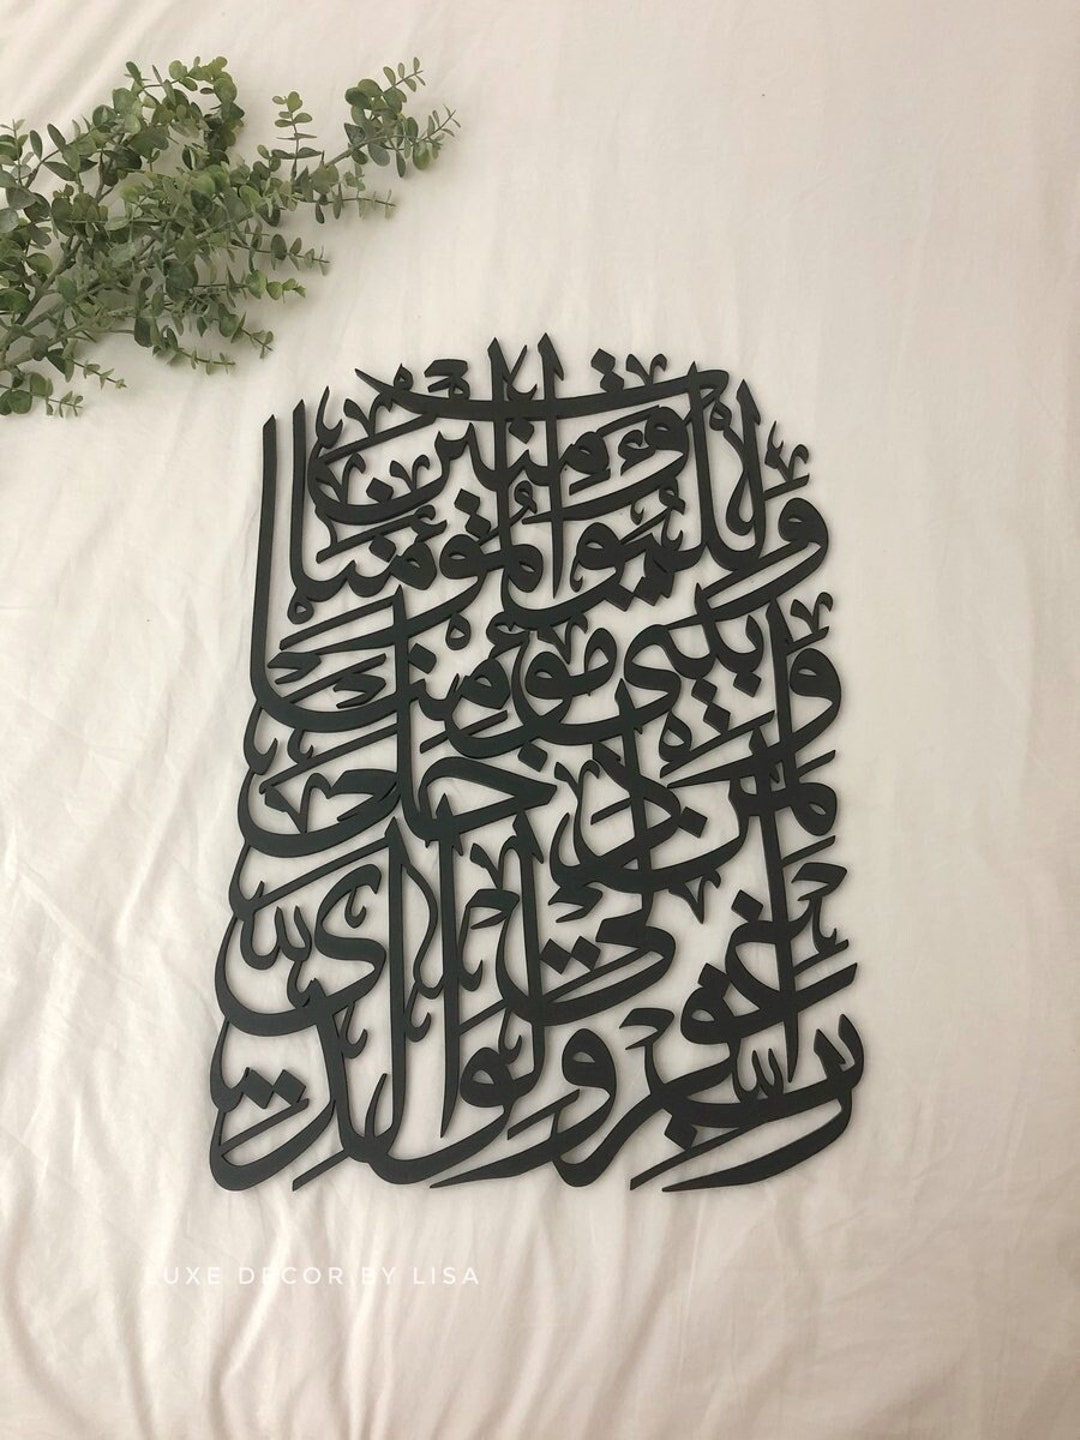 رب اغفر لي ولوالدي
ولمن دخل
بيتي مؤمنا
وللمؤمنين والمؤمنات
LUXE DECOR BY LISA